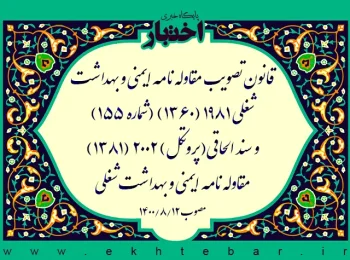 پایگاه خبری
اختبار
قانون تصویب مقاوله نامه ایمنی و بهداشت
شغلی ۱۹۸۱ (۱۳۶۰) (شماره ۱۵۵)
و سند الحاقی (پروتکل) ۲۰۰۲ (۱۳۸۱)
مقاوله نامه ایمنی و بهداشت شغلی
مصوب ۱۴۰۰/۸/۱۲
www.ekhtebar.ir